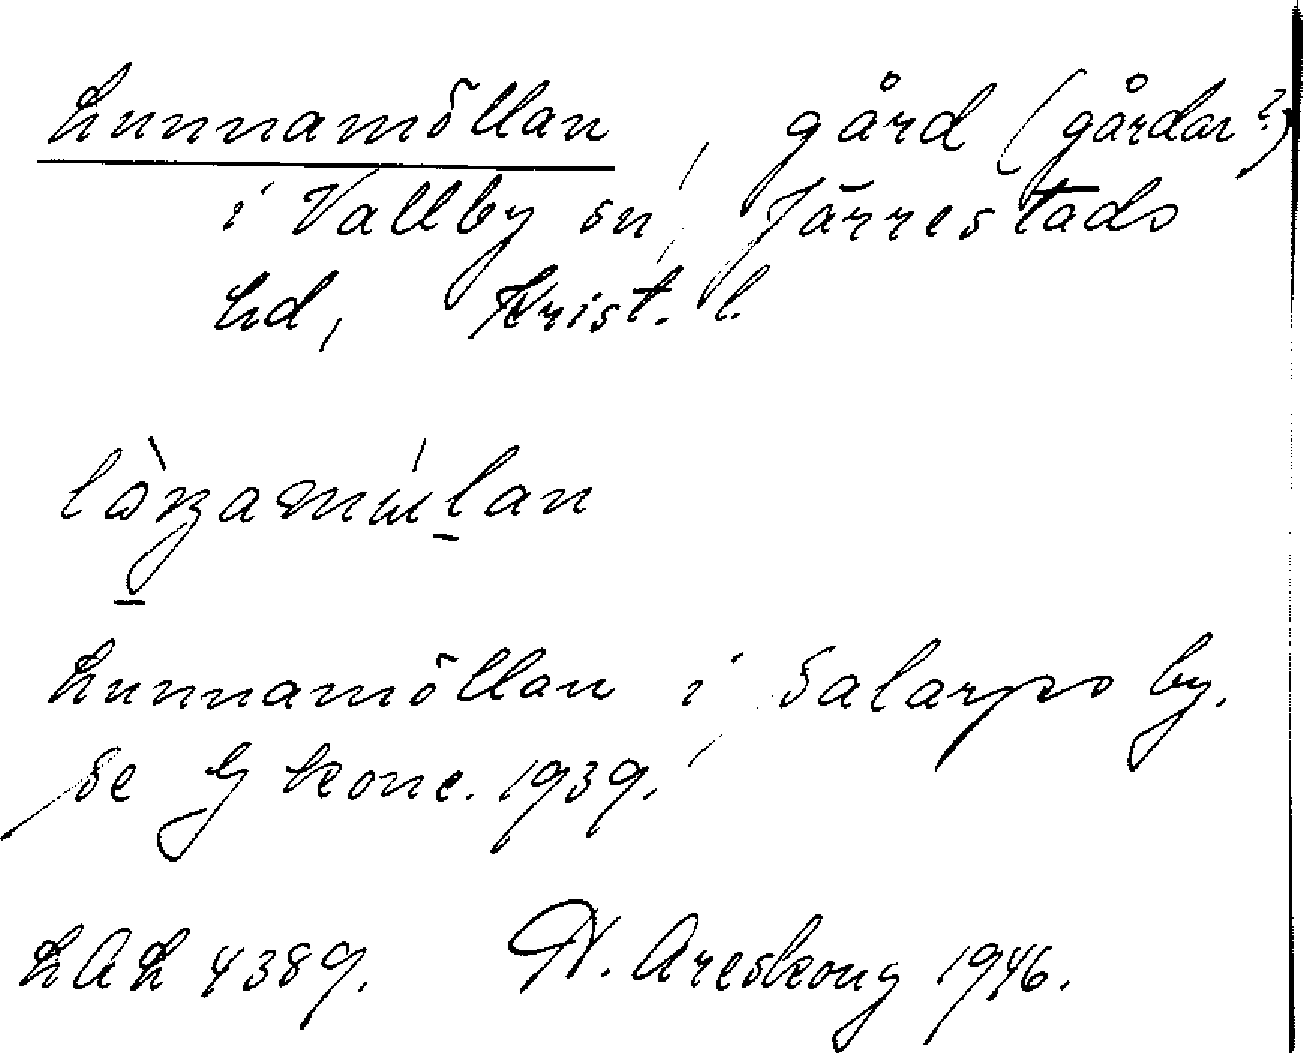 Lunnamöllan, gård (gårdar?)
i Vallby sn, Järrestads
hd, Krist. l.
Lunnamöllan i Salarps by.
Se G konc. 1939.
LAL 4389. N. Areskoug 1946.